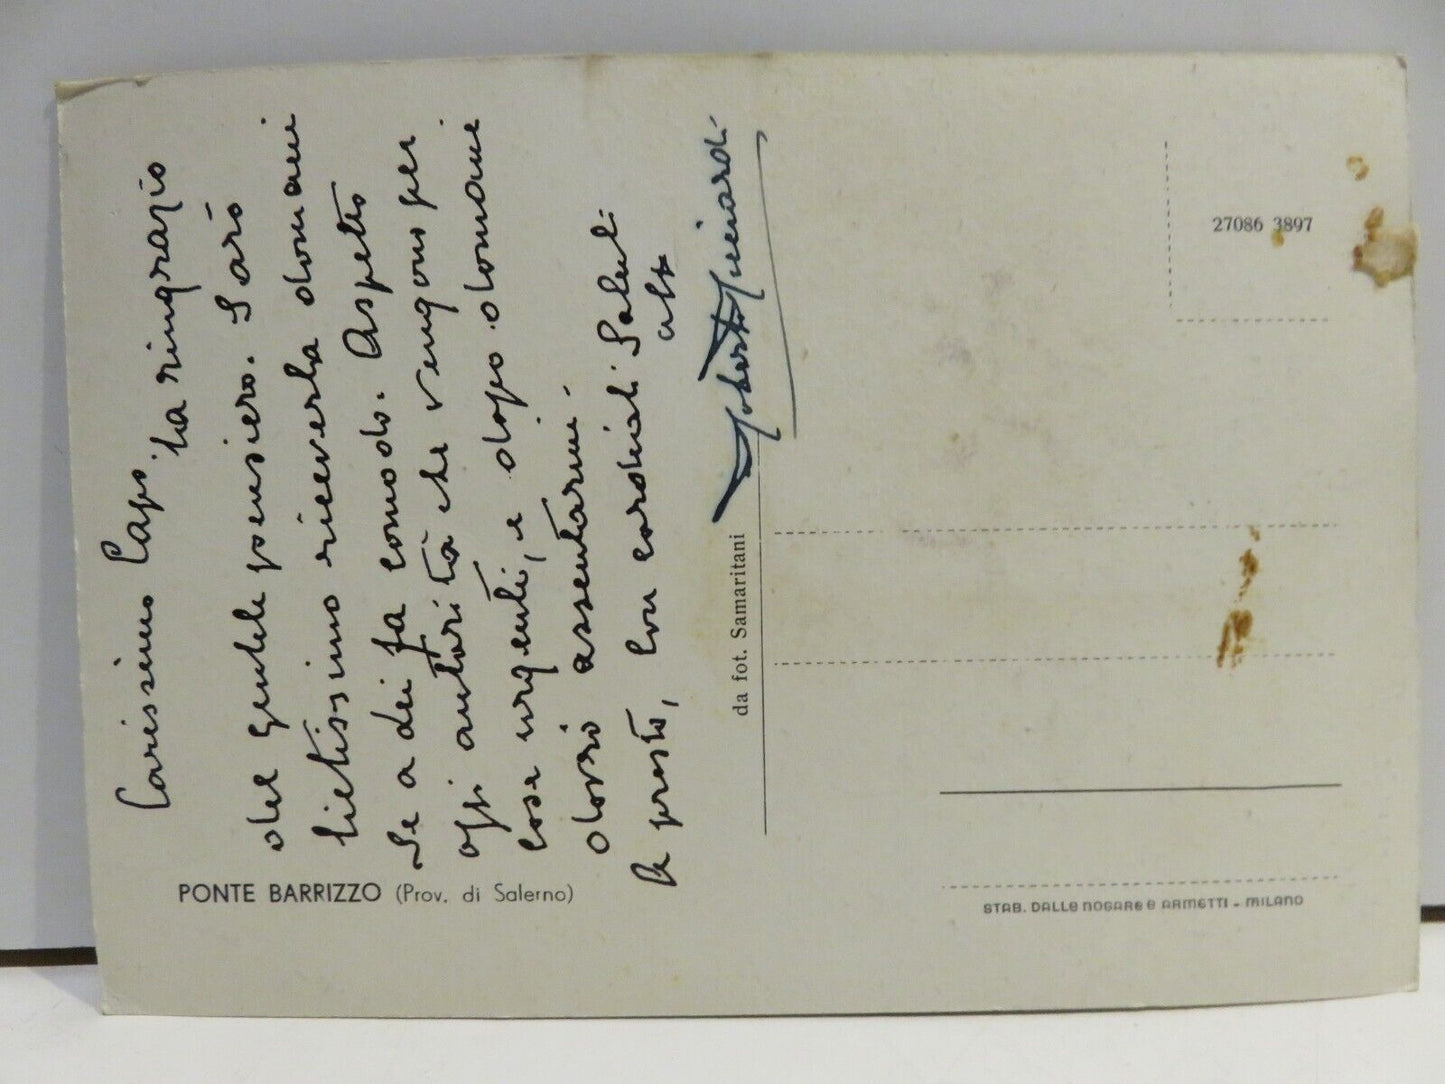 Carissimo Capo, la ringrazio
del gentile pensiero. Sarò
lietissimo riceverla domani
se a lei fa comodo. Aspetto
oggi autorità che vengono per
cose urgenti, e dopo domani
dovrò assentarmi.
A presto, con cordiali saluti
da fot. Samaritani
27086 3897
PONTE BARRIZZO (Prov. di Salerno)
STAB. DALLE NOGARE e ARMETTI - MILANO